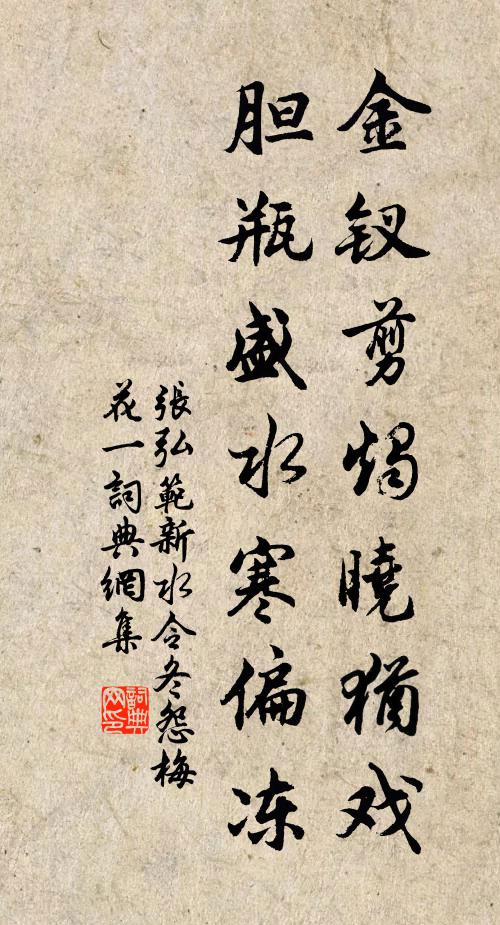 金钗剪烛曉猶戏
胆瓶盛水寒偏冻
張弘範新水令冬怨梅
花一詞典網集
詞典网印